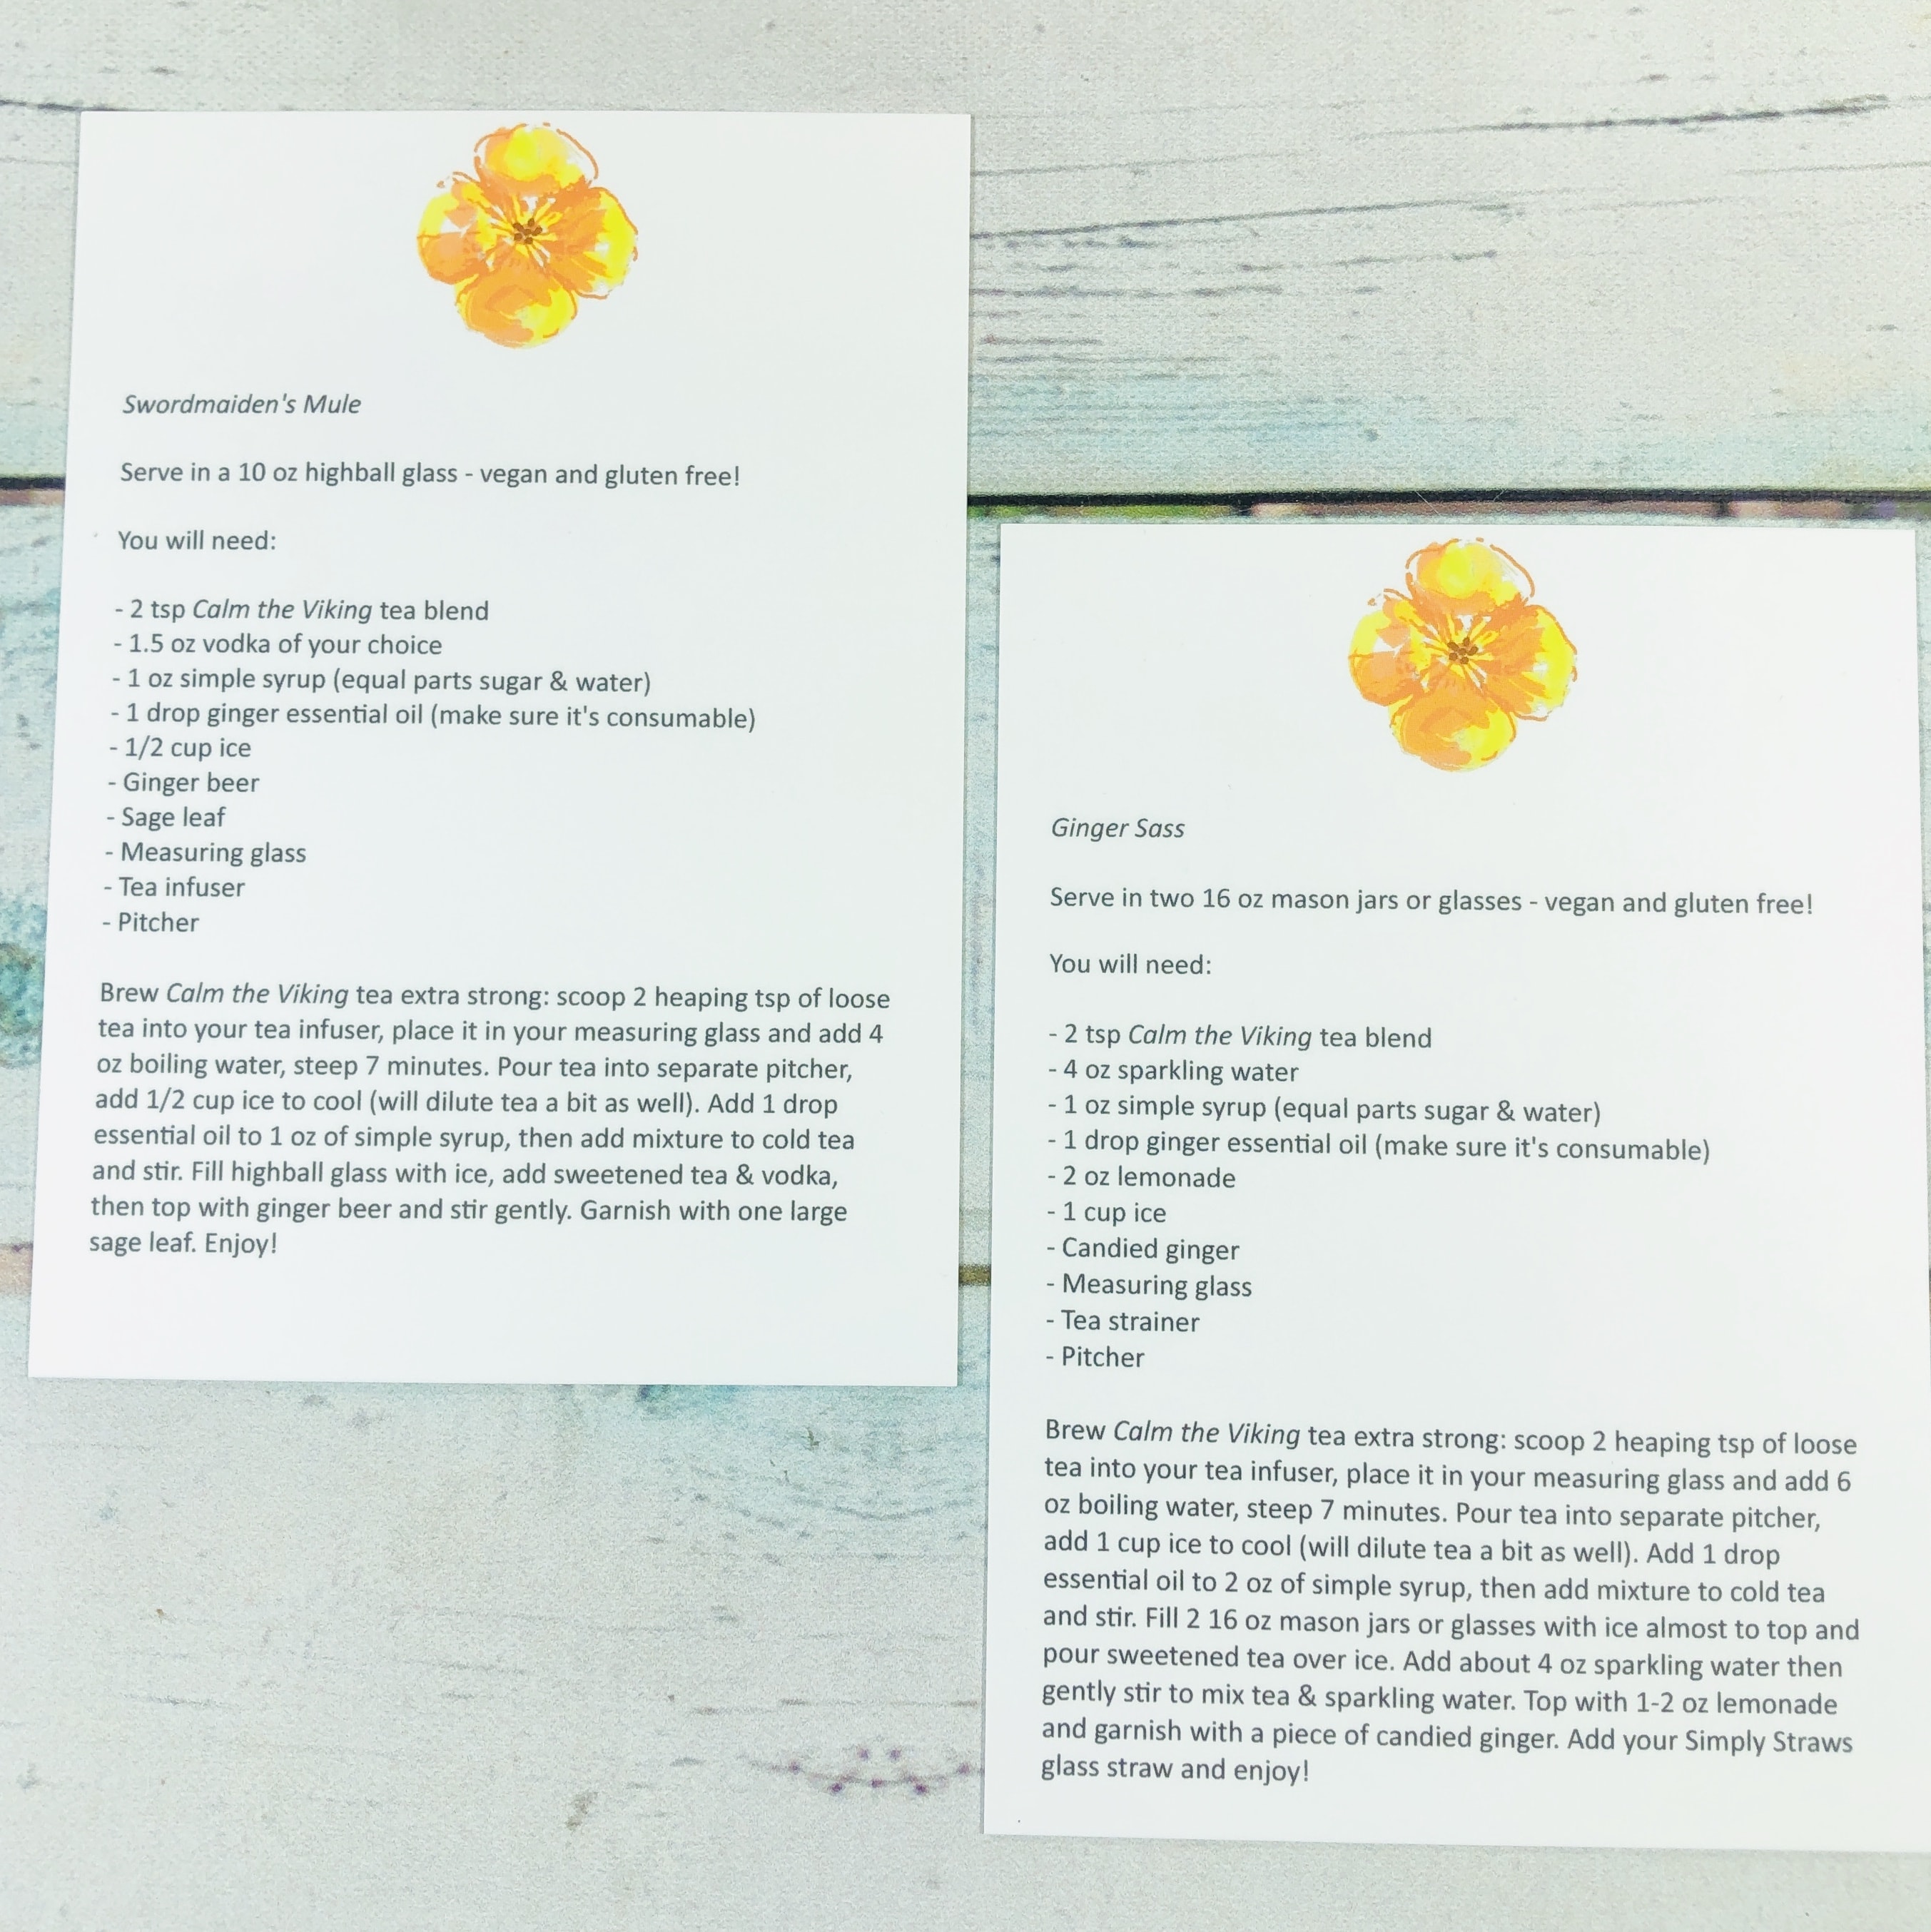 Swordmaiden's Mule
Serve in a 10 oz highball glass - vegan and gluten free!
You will need:
- 2 tsp Calm the Viking tea blend
- 1.5 oz vodka of your choice
- 1 oz simple syrup (equal parts sugar & water)
- 1 drop ginger essential oil (make sure it's consumable)
- 1/2 cup ice
- Ginger beer
- Sage leaf
- Measuring glass
- Tea infuser
- Pitcher
Brew Calm the Viking tea extra strong: scoop 2 heaping tsp of loose
tea into your tea infuser, place it in your measuring glass and add 4
oz boiling water, steep 7 minutes. Pour tea into separate pitcher,
add 1/2 cup ice to cool (will dilute tea a bit as well). Add 1 drop
essential oil to 1 oz of simple syrup, then add mixture to cold tea
and stir. Fill highball glass with ice, add sweetened tea & vodka,
then top with ginger beer and stir gently. Garnish with one large
sage leaf. Enjoy!
Ginger Sass
Serve in two 16 oz mason jars or glasses - vegan and gluten free!
You will need:
- 2 tsp Calm the Viking tea blend
- 4 oz sparkling water
- 1 oz simple syrup (equal parts sugar & water)
- 1 drop ginger essential oil (make sure it's consumable)
- 2 oz lemonade
- 1 cup ice
- Candied ginger
- Measuring glass
- Tea strainer
- Pitcher
Brew Calm the Viking tea extra strong: scoop 2 heaping tsp of loose
tea into your tea infuser, place it in your measuring glass and add 6
oz boiling water, steep 7 minutes. Pour tea into separate pitcher,
add 1 cup ice to cool (will dilute tea a bit as well). Add 1 drop
essential oil to 2 oz of simple syrup, then add mixture to cold tea
and stir. Fill 2 16 oz mason jars or glasses with ice almost to top and
pour sweetened tea over ice. Add about 4 oz sparkling water then
gently stir to mix tea & sparkling water. Top with 1-2 oz lemonade
and garnish with a piece of candied ginger. Add your Simply Straws
glass straw and enjoy!